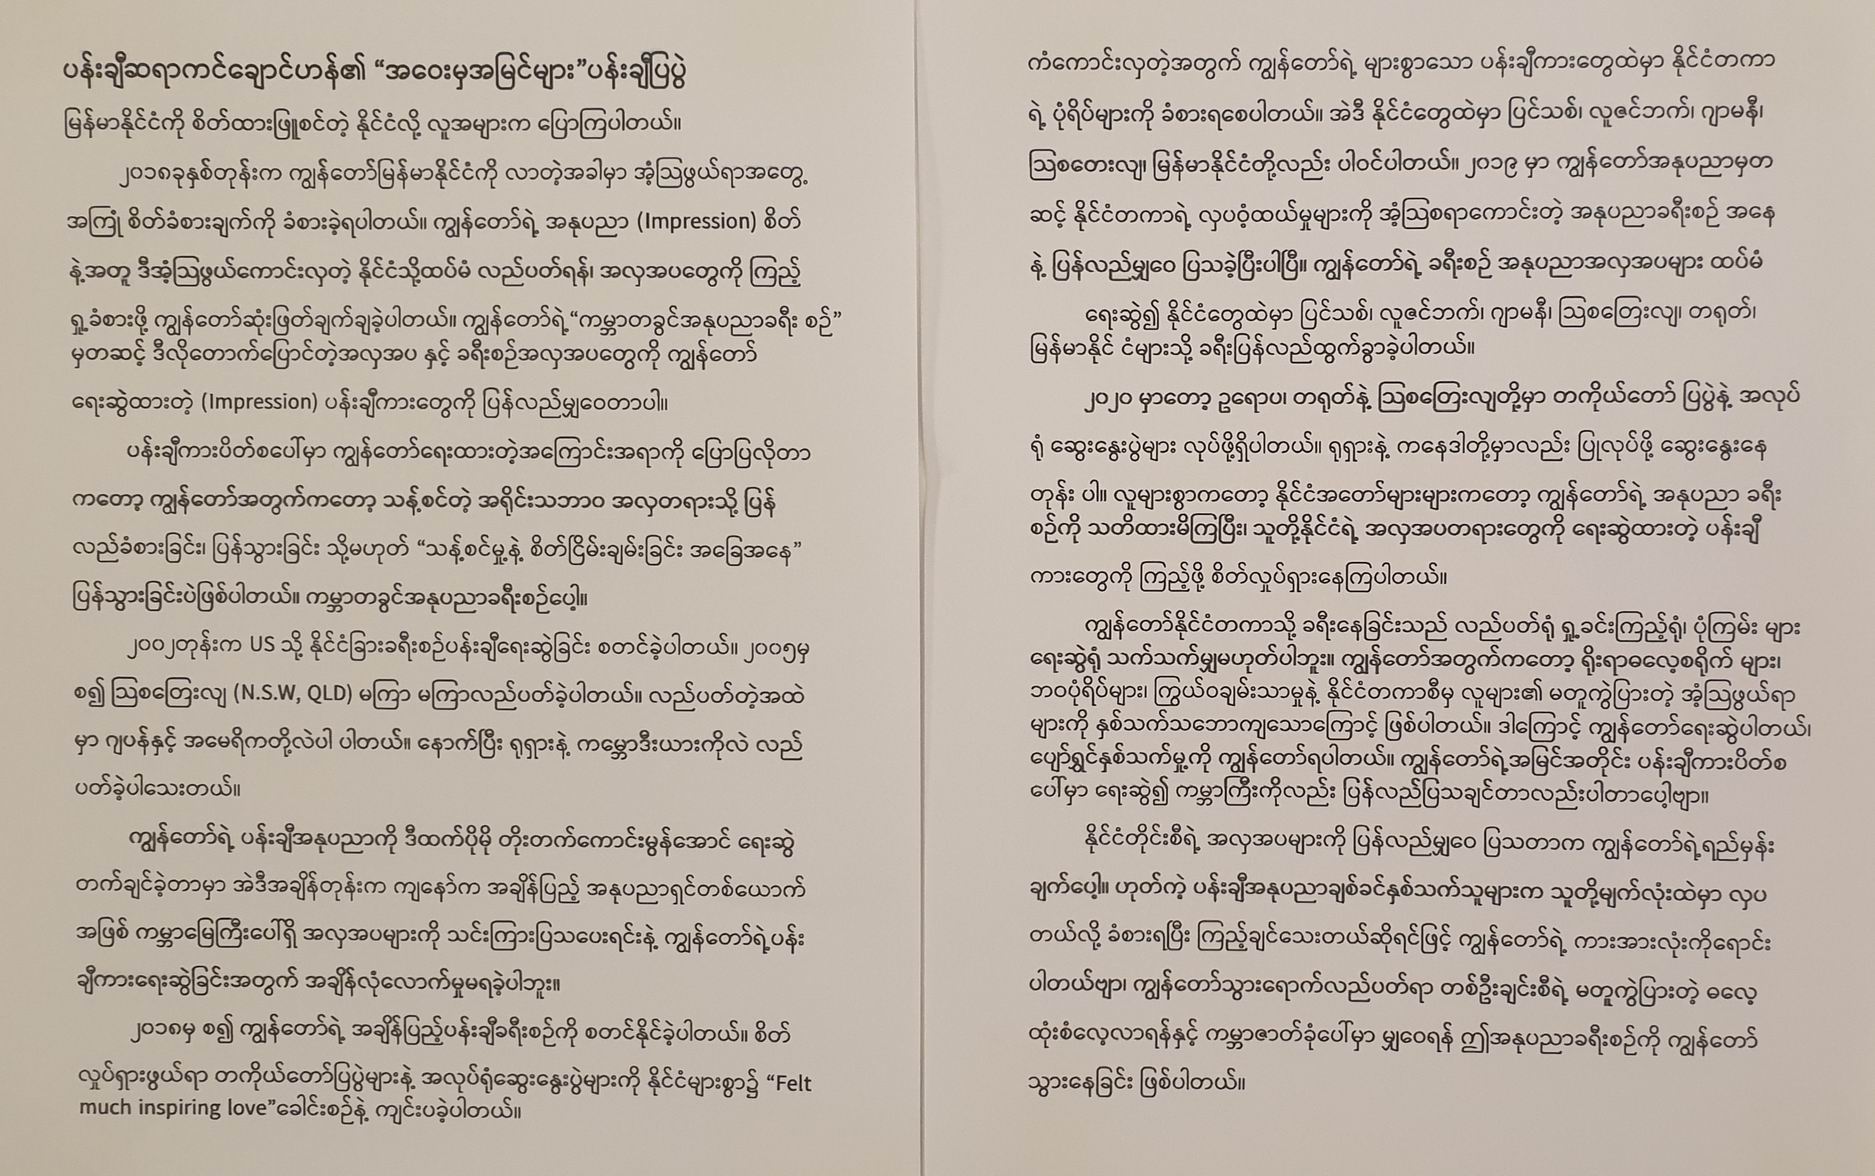 ပန်းချီဆရာကင်ချောင်ဟန်၏ “အဝေးမှအမြင်များ”ပန်းချီပြပွဲ
မြန်မာနိုင်ငံကို စိတ်ထားဖြူစင်တဲ့ နိုင်ငံလို့ လူအများက ပြောကြပါတယ်။
၂၀၁၈ခုနှစ်တုန်းက ကျွန်တော်မြန်မာနိုင်ငံကို လာတဲ့အခါမှာ အံ့ဩဖွယ်ရာအတွေ့
အကြုံ စိတ်ခံစားချက်ကို ခံစားခဲ့ရပါတယ်။ ကျွန်တော်ရဲ့ အနုပညာ (Impression) စိတ်
နဲ့အတူ ဒီအံ့ဩဖွယ်ကောင်းလှတဲ့ နိုင်ငံသို့ထပ်မံ လည်ပတ်ရန်၊ အလှအပတွေကို ကြည့်
ရှု့ခံစားဖို့ ကျွန်တော်ဆုံးဖြတ်ချက်ချခဲ့ပါတယ်။ ကျွန်တော်ရဲ့“ကမ္ဘာတခွင်အနုပညာခရီး စဉ်”
မှတဆင့် ဒီလိုတောက်ပြောင်တဲ့အလှအပ နှင့် ခရီးစဉ်အလှအပတွေကို ကျွန်တော်
ရေးဆွဲထားတဲ့ (Impression) ပန်းချီကားတွေကို ပြန်လည်မျှဝေတာပါ။
ပန်းချီကားပိတ်စပေါ်မှာ ကျွန်တော်ရေးထားတဲ့အကြောင်းအရာကို ပြောပြလိုတာ
ကတော့ ကျွန်တော်အတွက်ကတော့ သန့်စင်တဲ့ အရိုင်းသဘာဝ အလှတရားသို့ ပြန်
လည်ခံစားခြင်း၊ ပြန်သွားခြင်း သို့မဟုတ် “သန့်စင်မှု့နဲ့ စိတ်ငြိမ်းချမ်းခြင်း အခြေအနေ”
ပြန်သွားခြင်းပဲဖြစ်ပါတယ်။ ကမ္ဘာတခွင်အနုပညာခရီးစဉ်ပေါ့။
၂၀၀၂တုန်းက US သို့ နိုင်ငံခြားခရီးစဉ်ပန်းချီရေးဆွဲခြင်း စတင်ခဲ့ပါတယ်။ ၂၀၀၅မှ
စ၍ ဩစတြေးလျ (N.S.W, QLD) မကြာ မကြာလည်ပတ်ခဲ့ပါတယ်။ လည်ပတ်တဲ့အထဲ
မှာ ဂျပန်နှင့် အမေရိကတို့လဲပါ ပါတယ်။ နောက်ပြီး ရုရှားနဲ့ ကမ္ဘောဒီးယားကိုလဲ လည်
ပတ်ခဲ့ပါသေးတယ်။
ကျွန်တော်ရဲ့ ပန်းချီအနုပညာကို ဒီထက်ပိုမို တိုးတက်ကောင်းမွန်အောင် ရေးဆွဲ
တက်ချင်ခဲ့တာမှာ အဲဒီအချိန်တုန်းက ကျနော်က အချိန်ပြည့် အနုပညာရှင်တစ်ယောက်
အဖြစ် ကမ္ဘာမြေကြီးပေါ်ရှိ အလှအပများကို သင်းကြားပြသပေးရင်းနဲ့ ကျွန်တော်ရဲ့ပန်း
ချီကားရေးဆွဲခြင်းအတွက် အချိန်လုံလောက်မှုမရခဲ့ပါဘူး။
၂၀၁၈မှ စ၍ ကျွန်တော်ရဲ့ အချိန်ပြည့်ပန်းချီခရီးစဉ်ကို စတင်နိုင်ခဲ့ပါတယ်။ စိတ်
လှုပ်ရှားဖွယ်ရာ တကိုယ်တော်ပြပွဲများနဲ့ အလုပ်ရုံဆွေးနွေးပွဲများကို နိုင်ငံများစွာ၌ “Felt
much inspiring love”ခေါင်းစဉ်နဲ့ ကျင်းပခဲ့ပါတယ်။
ကံကောင်းလှတဲ့အတွက် ကျွန်တော်ရဲ့ များစွာသော ပန်းချီကားတွေထဲမှာ နိုင်ငံတကာ
ရဲ့ ပုံရိပ်များကို ခံစားရစေပါတယ်။ အဲဒီ နိုင်ငံတွေထဲမှာ ပြင်သစ်၊ လူဇင်ဘက်၊ ဂျာမနီ၊
ဩစတေးလျ၊ မြန်မာနိုင်ငံတို့လည်း ပါဝင်ပါတယ်။ ၂၀၁၉ မှာ ကျွန်တော်အနုပညာမှတ
ဆင့် နိုင်ငံတကာရဲ့ လှပဝံ့ထယ်မှုများကို အံ့ဩစရာကောင်းတဲ့ အနုပညာခရီးစဉ် အနေ
နဲ့ ပြန်လည်မျှဝေ ပြသခဲ့ပြီးပါပြီ။ ကျွန်တော်ရဲ့ ခရီးစဉ် အနုပညာအလှအပများ ထပ်မံ
ရေးဆွဲ၍ နိုင်ငံတွေထဲမှာ ပြင်သစ်၊ လူဇင်ဘက်၊ ဂျာမနီ၊ ဩစတြေးလျ၊ တရုတ်၊
မြန်မာနိုင် ငံများသို့ ခရီးပြန်လည်ထွက်ခွာခဲ့ပါတယ်။
၂၀၂၀ မှာတော့ ဥရောပ၊ တရုတ်နဲ့ ဩစတြေးလျတို့မှာ တကိုယ်တော် ပြပွဲနဲ့ အလုပ်
ရုံ ဆွေးနွေးပွဲများ လုပ်ဖို့ရှိပါတယ်။ ရုရှားနဲ့ ကနေဒါတို့မှာလည်း ပြုလုပ်ဖို့ ဆွေးနွေးနေ
တုန်း ပါ။ လူများစွာကတော့ နိုင်ငံအတော်များများကတော့ ကျွန်တော်ရဲ့ အနုပညာ ခရီး
စဉ်ကို သတိထားမိကြပြီး၊ သူတို့နိုင်ငံရဲ့ အလှအပတရားတွေကို ရေးဆွဲထားတဲ့ ပန်းချီ
ကားတွေကို ကြည့်ဖို့ စိတ်လှုပ်ရှားနေကြပါတယ်။
ကျွန်တော်နိုင်ငံတကာသို့ ခရီးနေခြင်းသည် လည်ပတ်ရုံ ရှု့ခင်းကြည့်ရုံ၊ ပုံကြမ်း များ
ရေးဆွဲရုံ သက်သက်မျှမဟုတ်ပါဘူး။ ကျွန်တော်အတွက်ကတော့ ရိုးရာဓလေ့စရိုက် များ၊
ဘဝပုံရိပ်များ၊ ကြွယ်ဝချမ်းသာမှုနဲ့ နိုင်ငံတကာစီမှ လူများ၏ မတူကွဲပြားတဲ့ အံ့ဩဖွယ်ရာ
များကို နှစ်သက်သဘောကျသောကြောင့် ဖြစ်ပါတယ်။ ဒါကြောင့် ကျွန်တော်ရေးဆွဲပါတယ်၊
ပျော်ရွှင်နှစ်သက်မှု့ကို ကျွန်တော်ရပါတယ်။ ကျွန်တော်ရဲ့အမြင်အတိုင်း ပန်းချီကားပိတ်စ
ပေါ်မှာ ရေးဆွဲ၍ ကမ္ဘာကြီးကိုလည်း ပြန်လည်ပြသချင်တာလည်းပါတာပေါ့ဗျာ။
နိုင်ငံတိုင်းစီရဲ့ အလှအပများကို ပြန်လည်မျှဝေ ပြသတာက ကျွန်တော်ရဲ့ရည်မှန်း
ချက်ပေါ့။ ဟုတ်ကဲ့ ပန်းချီအနုပညာချစ်ခင်နှစ်သက်သူများက သူတို့မျက်လုံးထဲမှာ လှပ
တယ်လို့ ခံစားရပြီး ကြည့်ချင်သေးတယ်ဆိုရင်ဖြင့် ကျွန်တော်ရဲ့ ကားအားလုံးကိုရောင်း
ပါတယ်ဗျာ၊ ကျွန်တော်သွားရောက်လည်ပတ်ရာ တစ်ဦးချင်းစီရဲ့ မတူကွဲပြားတဲ့ ဓလေ့
ထုံးစံလေ့လာရန်နှင့် ကမ္ဘာဇာတ်ခုံပေါ်မှာ မျှဝေရန် ဤအနုပညာခရီးစဉ်ကို ကျွန်တော်
သွားနေခြင်း ဖြစ်ပါတယ်။